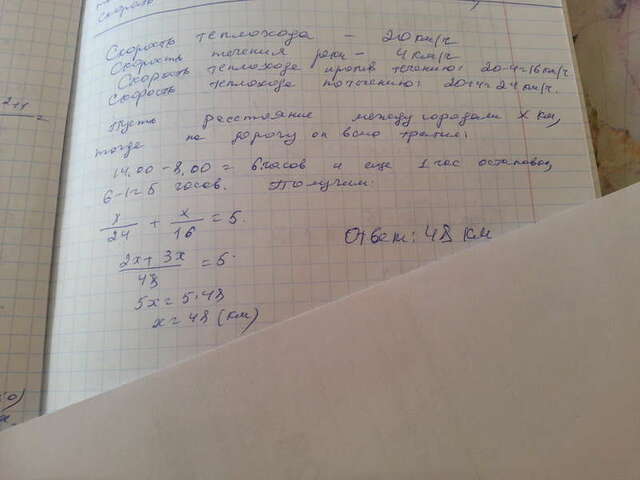 скорость
Скорость теплохода - 20 км/ч
Скорость течения реки - 4 км/ч
Скорость теплохода против течению: 20-4=16 км/ч.
Скорость теплохода потечению: 20+4=24 км/ч.
Пусть расстояние между городами x км,
тогда на дорогу он всего тратил:
14.00 - 8.00 = 6 часов и еще 1 час остановоз,
6-1=5 часов. Получим:
x/24 + x/16 = 5.
2x + 3x/48 = 5.
5x = 5·48
x = 48 (км)
Ответ: 48 км